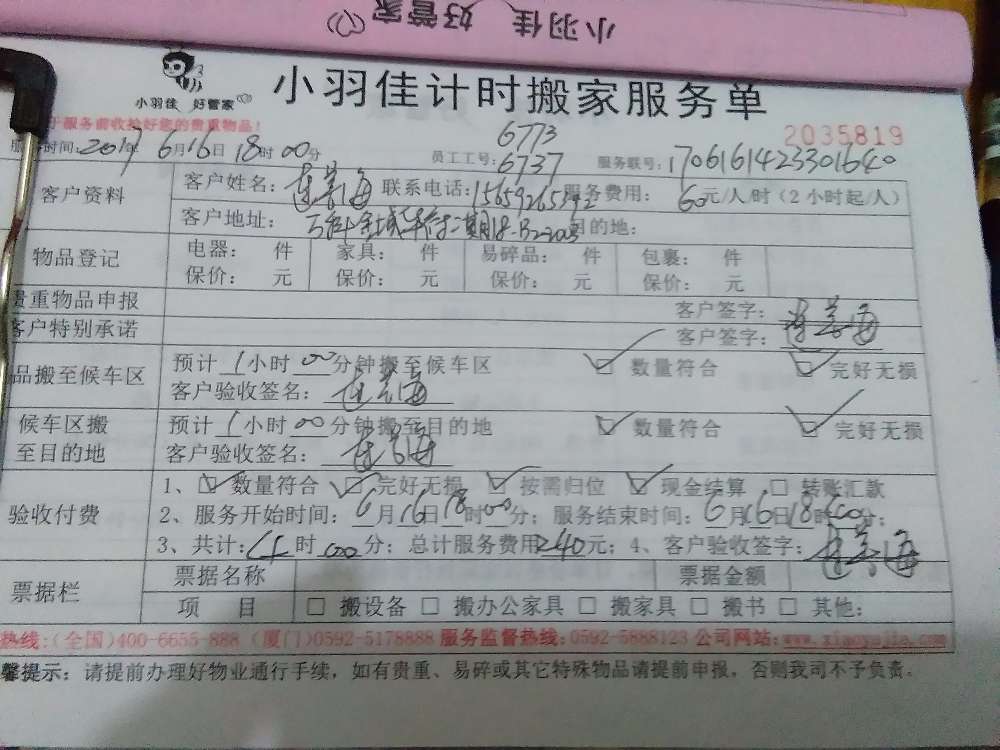 小羽佳 好管家
小羽佳 好管家
小羽佳计时搬家服务单
于服务前收拾好您的贵重物品！
2035819
服务时间：2017年6月16日18时00分 员工工号：6773 6737 服务联号：1706161423301640
客户资料 客户姓名： 联系电话： 服务费用：60元/人/时（2小时起/人）
客户地址： 目的地：
物品登记 电器： 件 家具： 件 易碎品： 件 包裹： 件
保价： 元 保价： 元 保价： 元 保价： 元
贵重物品申报 客户签字：
客户特别承诺 客户签字：
品搬至候车区 预计1小时00分钟搬至候车区 ☑ 数量符合 ☑ 完好无损
客户验收签名：
候车区搬至目的地 预计1小时00分钟搬至目的地 ☑ 数量符合 ☑ 完好无损
客户验收签名：
验收付费 1、☑ 数量符合 ☑ 完好无损 ☑ 按需归位 ☑ 现金结算 □ 转账汇款
2、服务开始时间：6月16日18时00分；服务结束时间：6月16日18时00分；
3、共计： 时00分；总计服务费用240元；4、客户验收签字：
票据栏 票据名称 票据金额
项 目 □ 搬设备 □ 搬办公家具 □ 搬家具 □ 搬书 □ 其他：
热线：(全国)400-6655-888 (厦门)0592-5178888 服务监督热线：0592-5888123 公司网站：www.xiaoyujia.com
馨提示：请提前办理好物业通行手续，如有贵重、易碎或其它特殊物品请提前申报，否则我司不予负责。